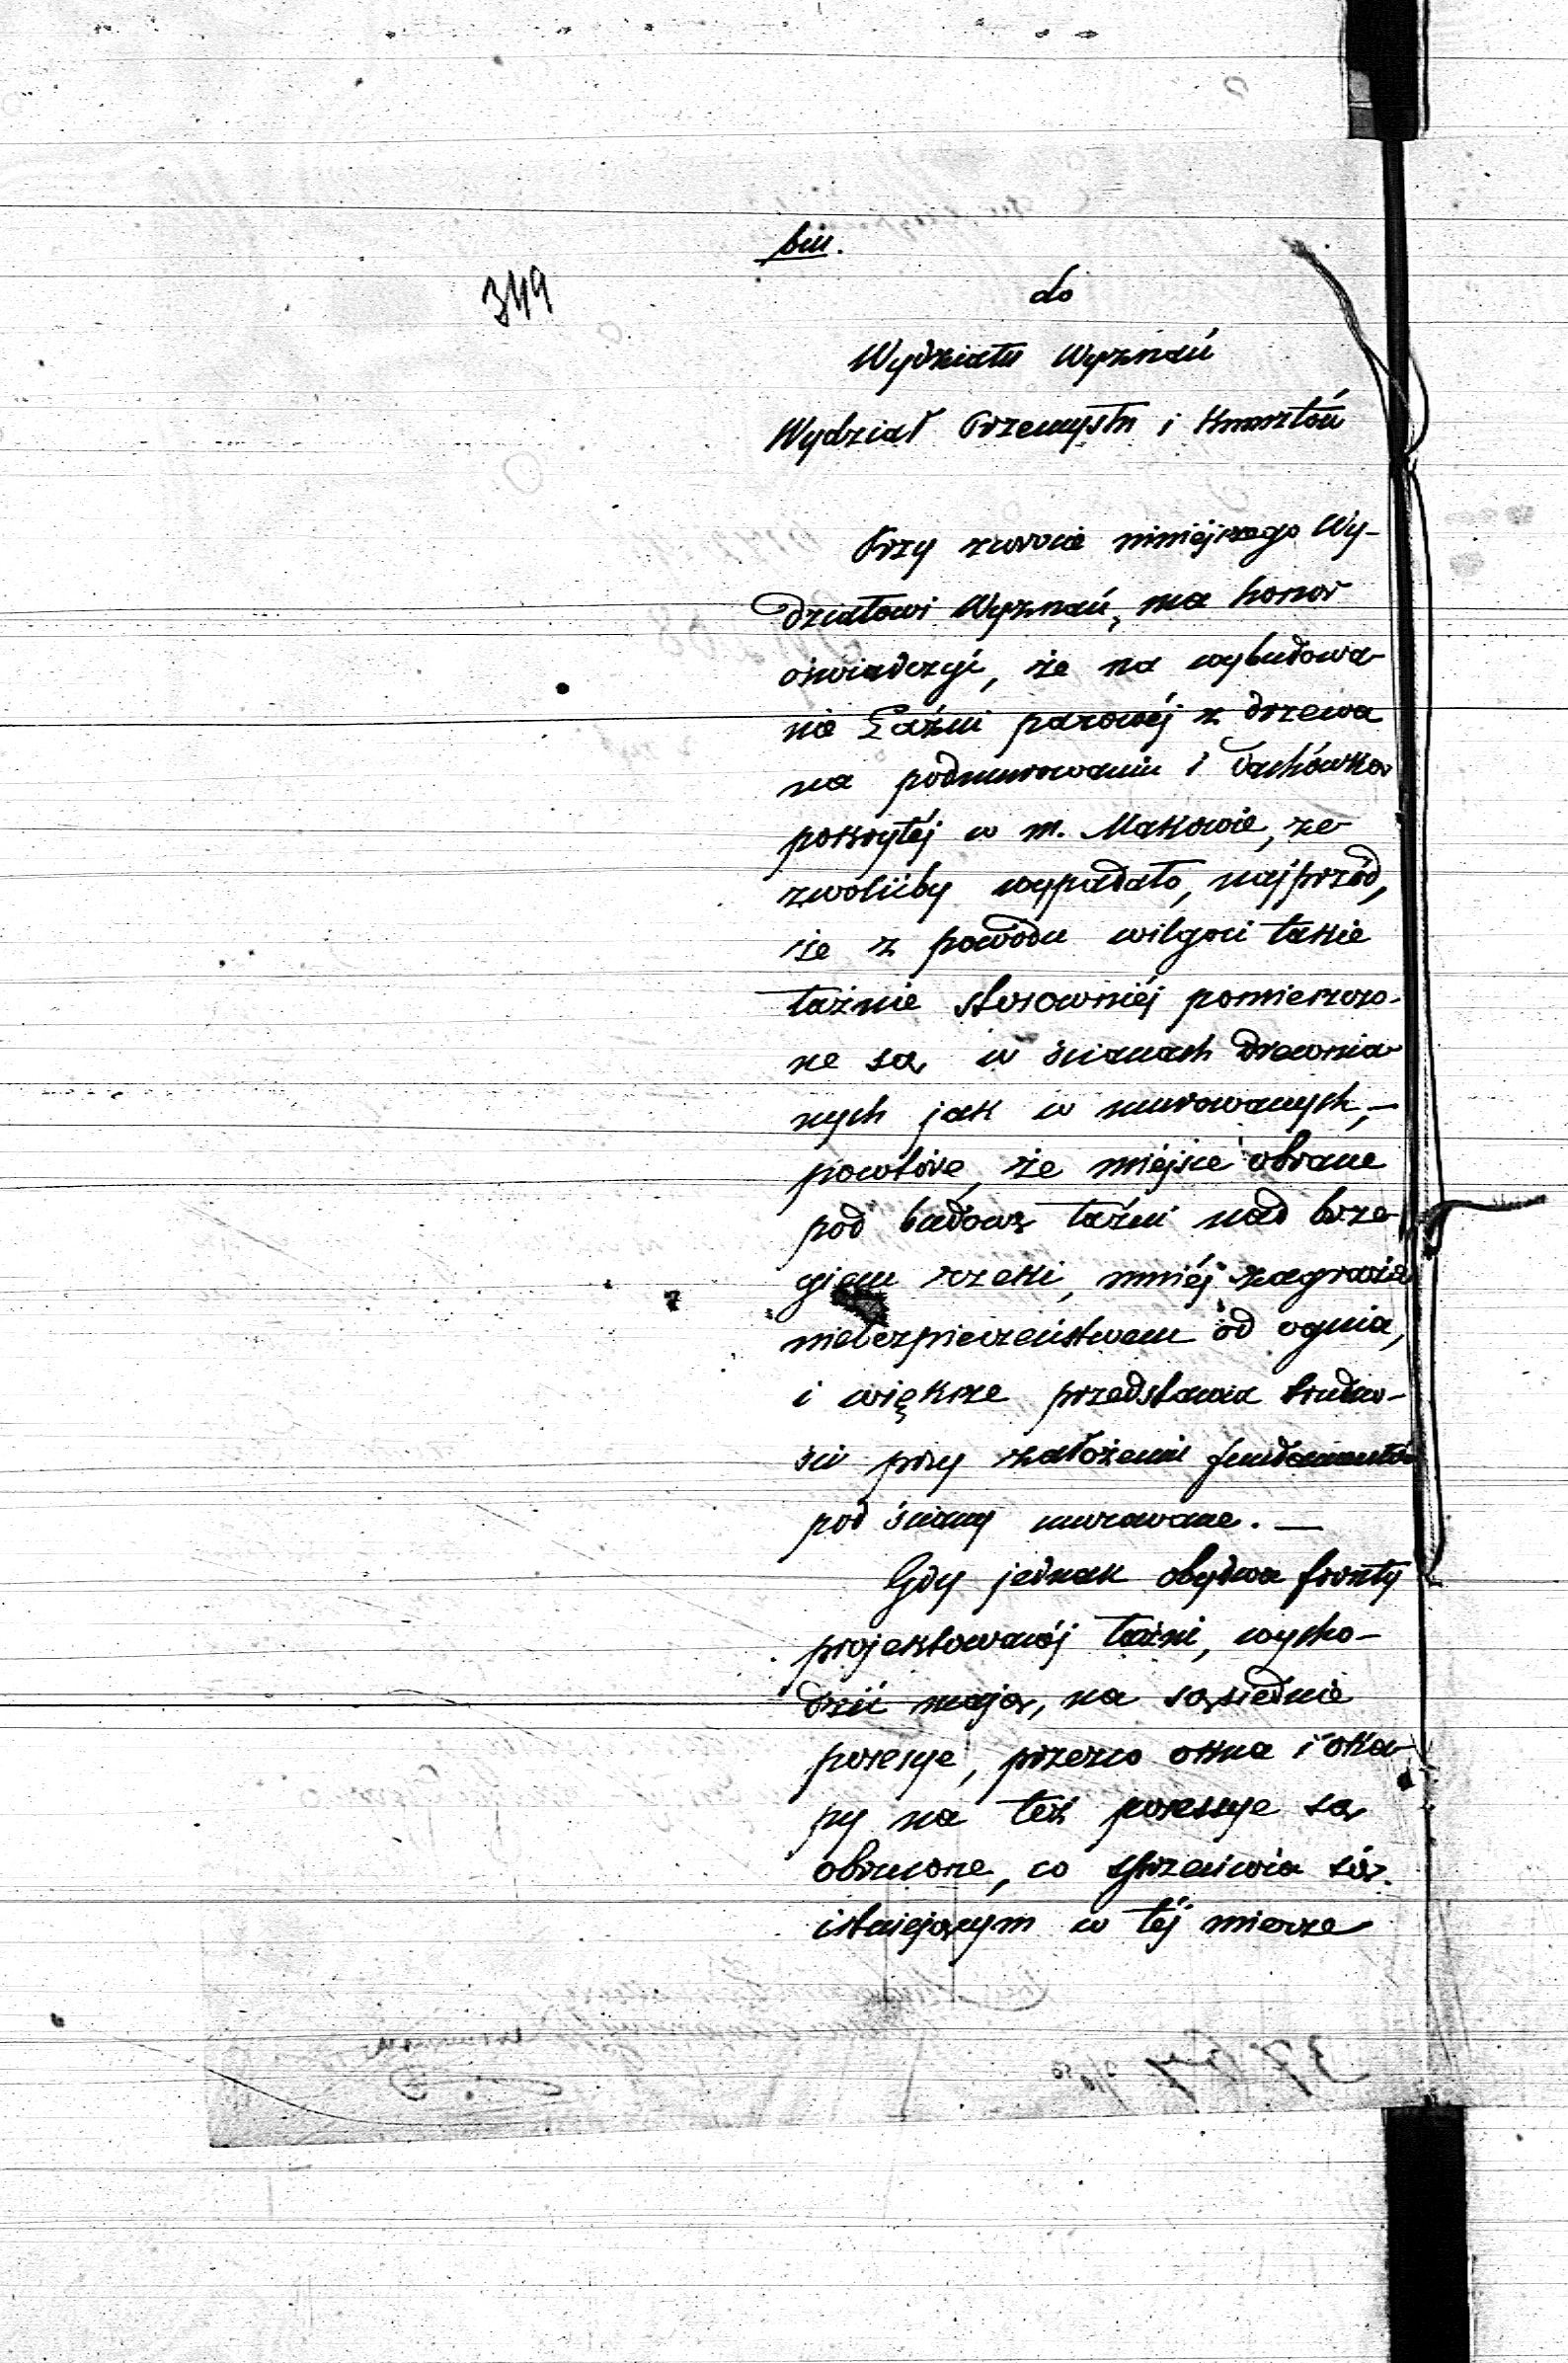 349
biu.
do
Wydziału Wyznań
Wydział Przemysłu i Kunsztów
Przy zwrocie niniéjszego Wy-
działowi Wyznań, ma honor
oświadczyć, że na wybudowa-
nie Łaźni parowéj z drzewa
na podmurowaniu i dachówką
pokrytéj w m. Makowie, ze-
zwolićby wypadało, najprzód,
że z powodu wilgoci takie
łaźnie stosowniéj pomieszczo-
ne są w ścianach drewnia-
nych jak w murowanych, —
powtóre, że miéjsce obrane
pod budowę łaźni nad brze-
giem rzeki, mniéj zagraża
niebezpieczeństwem od ognia,
i większe przedstawia trudno-
ści przy założeniu fundamentów
pod ściany murowane. —
Gdy jednak obydwa fronty
projektowanéj łaźni, wycho-
dzić mają, na sąsiednie
posesye, przezco okna i oka-
py na też posessye są
obrucone, co sprzeciwia się
istniejącym w téj mierze